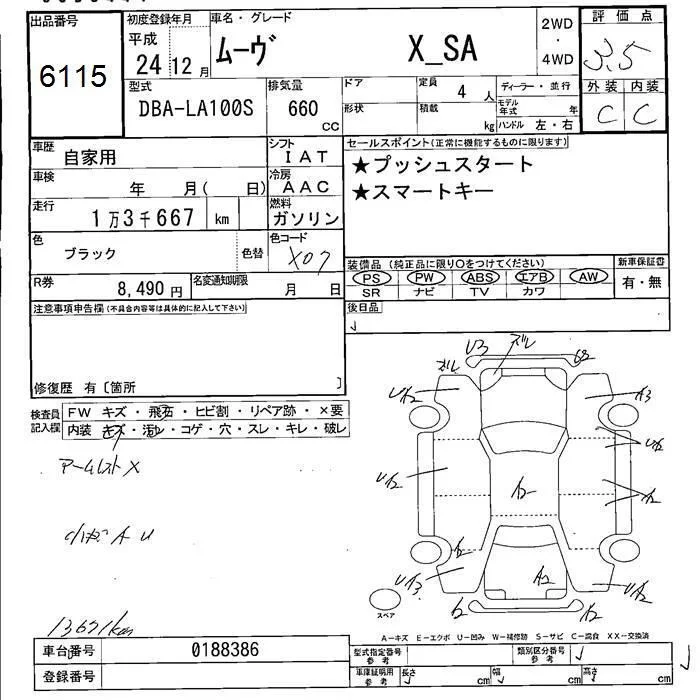 出品番号
6115
初度登録年月
平成
24 12 月
車名・グレード
ムーヴ X_SA
2WD
・
4WD
評価点
3.5
型式
DBA-LA100S
排気量
660
CC
ドア
形状
定員
4 人
積載
kg
ディーラー・並行
モデル年式 年
ハンドル 左・右
外装 内装
C C
車歴
自家用
シフト
IAT
車検
年 月( 日)
冷房
AAC
走行
1万3千667 km
燃料
ガソリン
色
ブラック
色替
色コード
X07
R券
8,490 円
名変通知期限
月 日
セールスポイント(正常に機能するものに限ります)
★プッシュスタート
★スマートキー
装備品 (純正品に限り○をつけてください)
PS PW ABS エアB AW
SR ナビ TV カワ
新車保証書
有・無
後日品
注意事項申告欄(不具合内容等は具体的に記入して下さい)
修復歴 有〔箇所 〕
検査員
記入欄
FW キズ・飛石・ヒビ割・リペア跡・×要
内装 キズ・汚レ・コゲ・穴・スレ・キレ・破レ
アームレスト X
U3
ズレ
ズレ
U3
UA2
A3
UA2
UA2
A2
A2
A2
UA3
A2
UA2
A2
スペア
13671km
A-キズ E-エクボ U-凹み W-補修跡 S-サビ C-腐食 XX-交換済
車台番号
0188386
登録番号
型式指定番号
参考
類別区分番号
参考
車庫証明用
参考
長さ cm
幅 cm
高さ cm